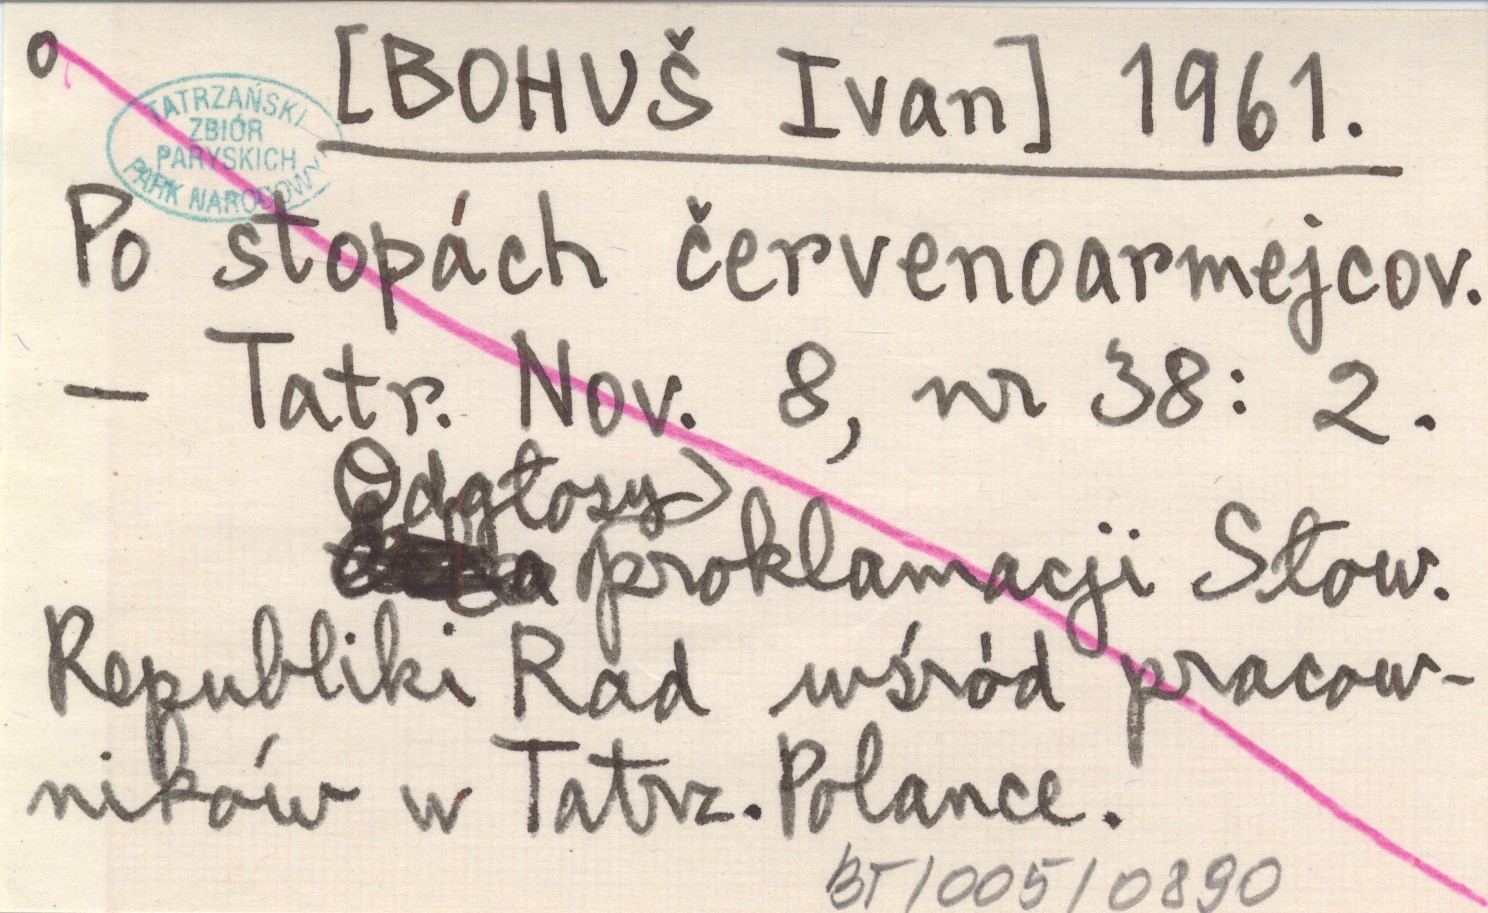 o
[BOHUŠ Ivan] 1961.
TATRZAŃSKI
ZBIÓR
PARYSKICH
PARK NARODOWY
Po stopách červenoarmejcov.
— Tatr. Nov. 8, nr 38: 2.
Odgłosy
proklamacji Słow.
Republiki Rad wśród pracow-
ników w Tatrz. Polance.
BT/005/0890